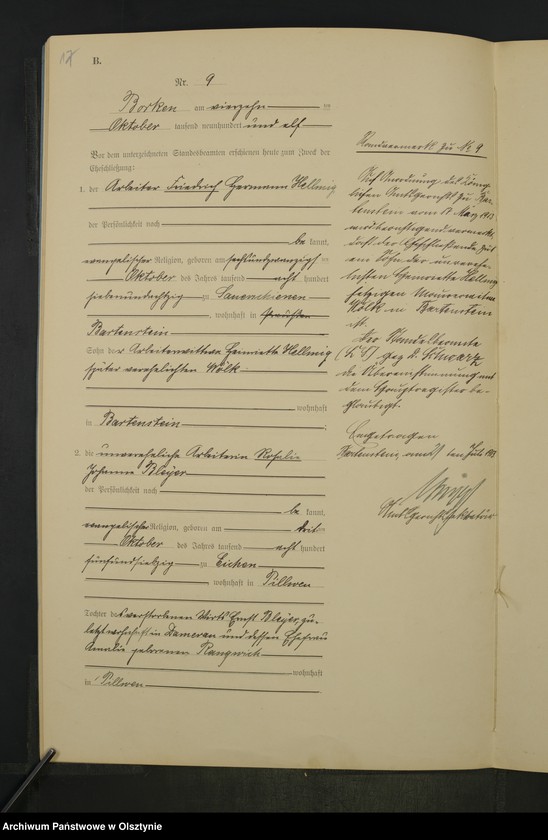 12
B.
Nr. 9
Borken am vierzehn ten
Oktober tausend neunhundert und elf
Vor dem unterzeichneten Standesbeamten erschienen heute zum Zweck der
Eheschließung:
1. der Arbeiter Friedrich Hermann Hellmig
der Persönlichkeit nach
be kannt,
evangelischer Religion, geboren am sechsundzwanzigs ten
Oktober des Jahres tausend acht hundert
siebenundachtzig zu
, wohnhaft in
Bartenstein
Sohn der Arbeiterwitwe Henriette Hellmig
später verehelichten Wölk
wohnhaft
in Bartenstein ;
2. die unverehelichte Arbeiterin Rosalie
Johanne Bleyer
der Persönlichkeit nach
be kannt,
evangelischer Religion, geboren am drit ten
Oktober des Jahres tausend acht hundert
fünfundsiebzig zu Eichen
, wohnhaft in Pillwen
Tochter des verstorbenen Wirts Ernst Bleyer, zu-
letzt wohnhaft in Damerau und dessen Ehefrau
Amalie geborenen Rangwich
wohnhaft
in Pillwen
Randvermerk zu No 9
Auf Anordnung des König-
lichen Amtsgerichts zu Bar-
tenstein vom März
wird berichtigend vermerkt,
daß der Eheschließende
ein Sohn der unverehe-
lichten Henriette Hellmig
jetzigen Maurerwitwe
Wölk in Bartenstein
ist.
Der Standesbeamte
gez. Schwarz
die Übereinstimmung mit
dem Hauptregister be-
glaubigt.
Eingetragen
Bartenstein, am ten Juli
Amtsgerichtssekretär
Archiwum Państwowe w Olsztynie